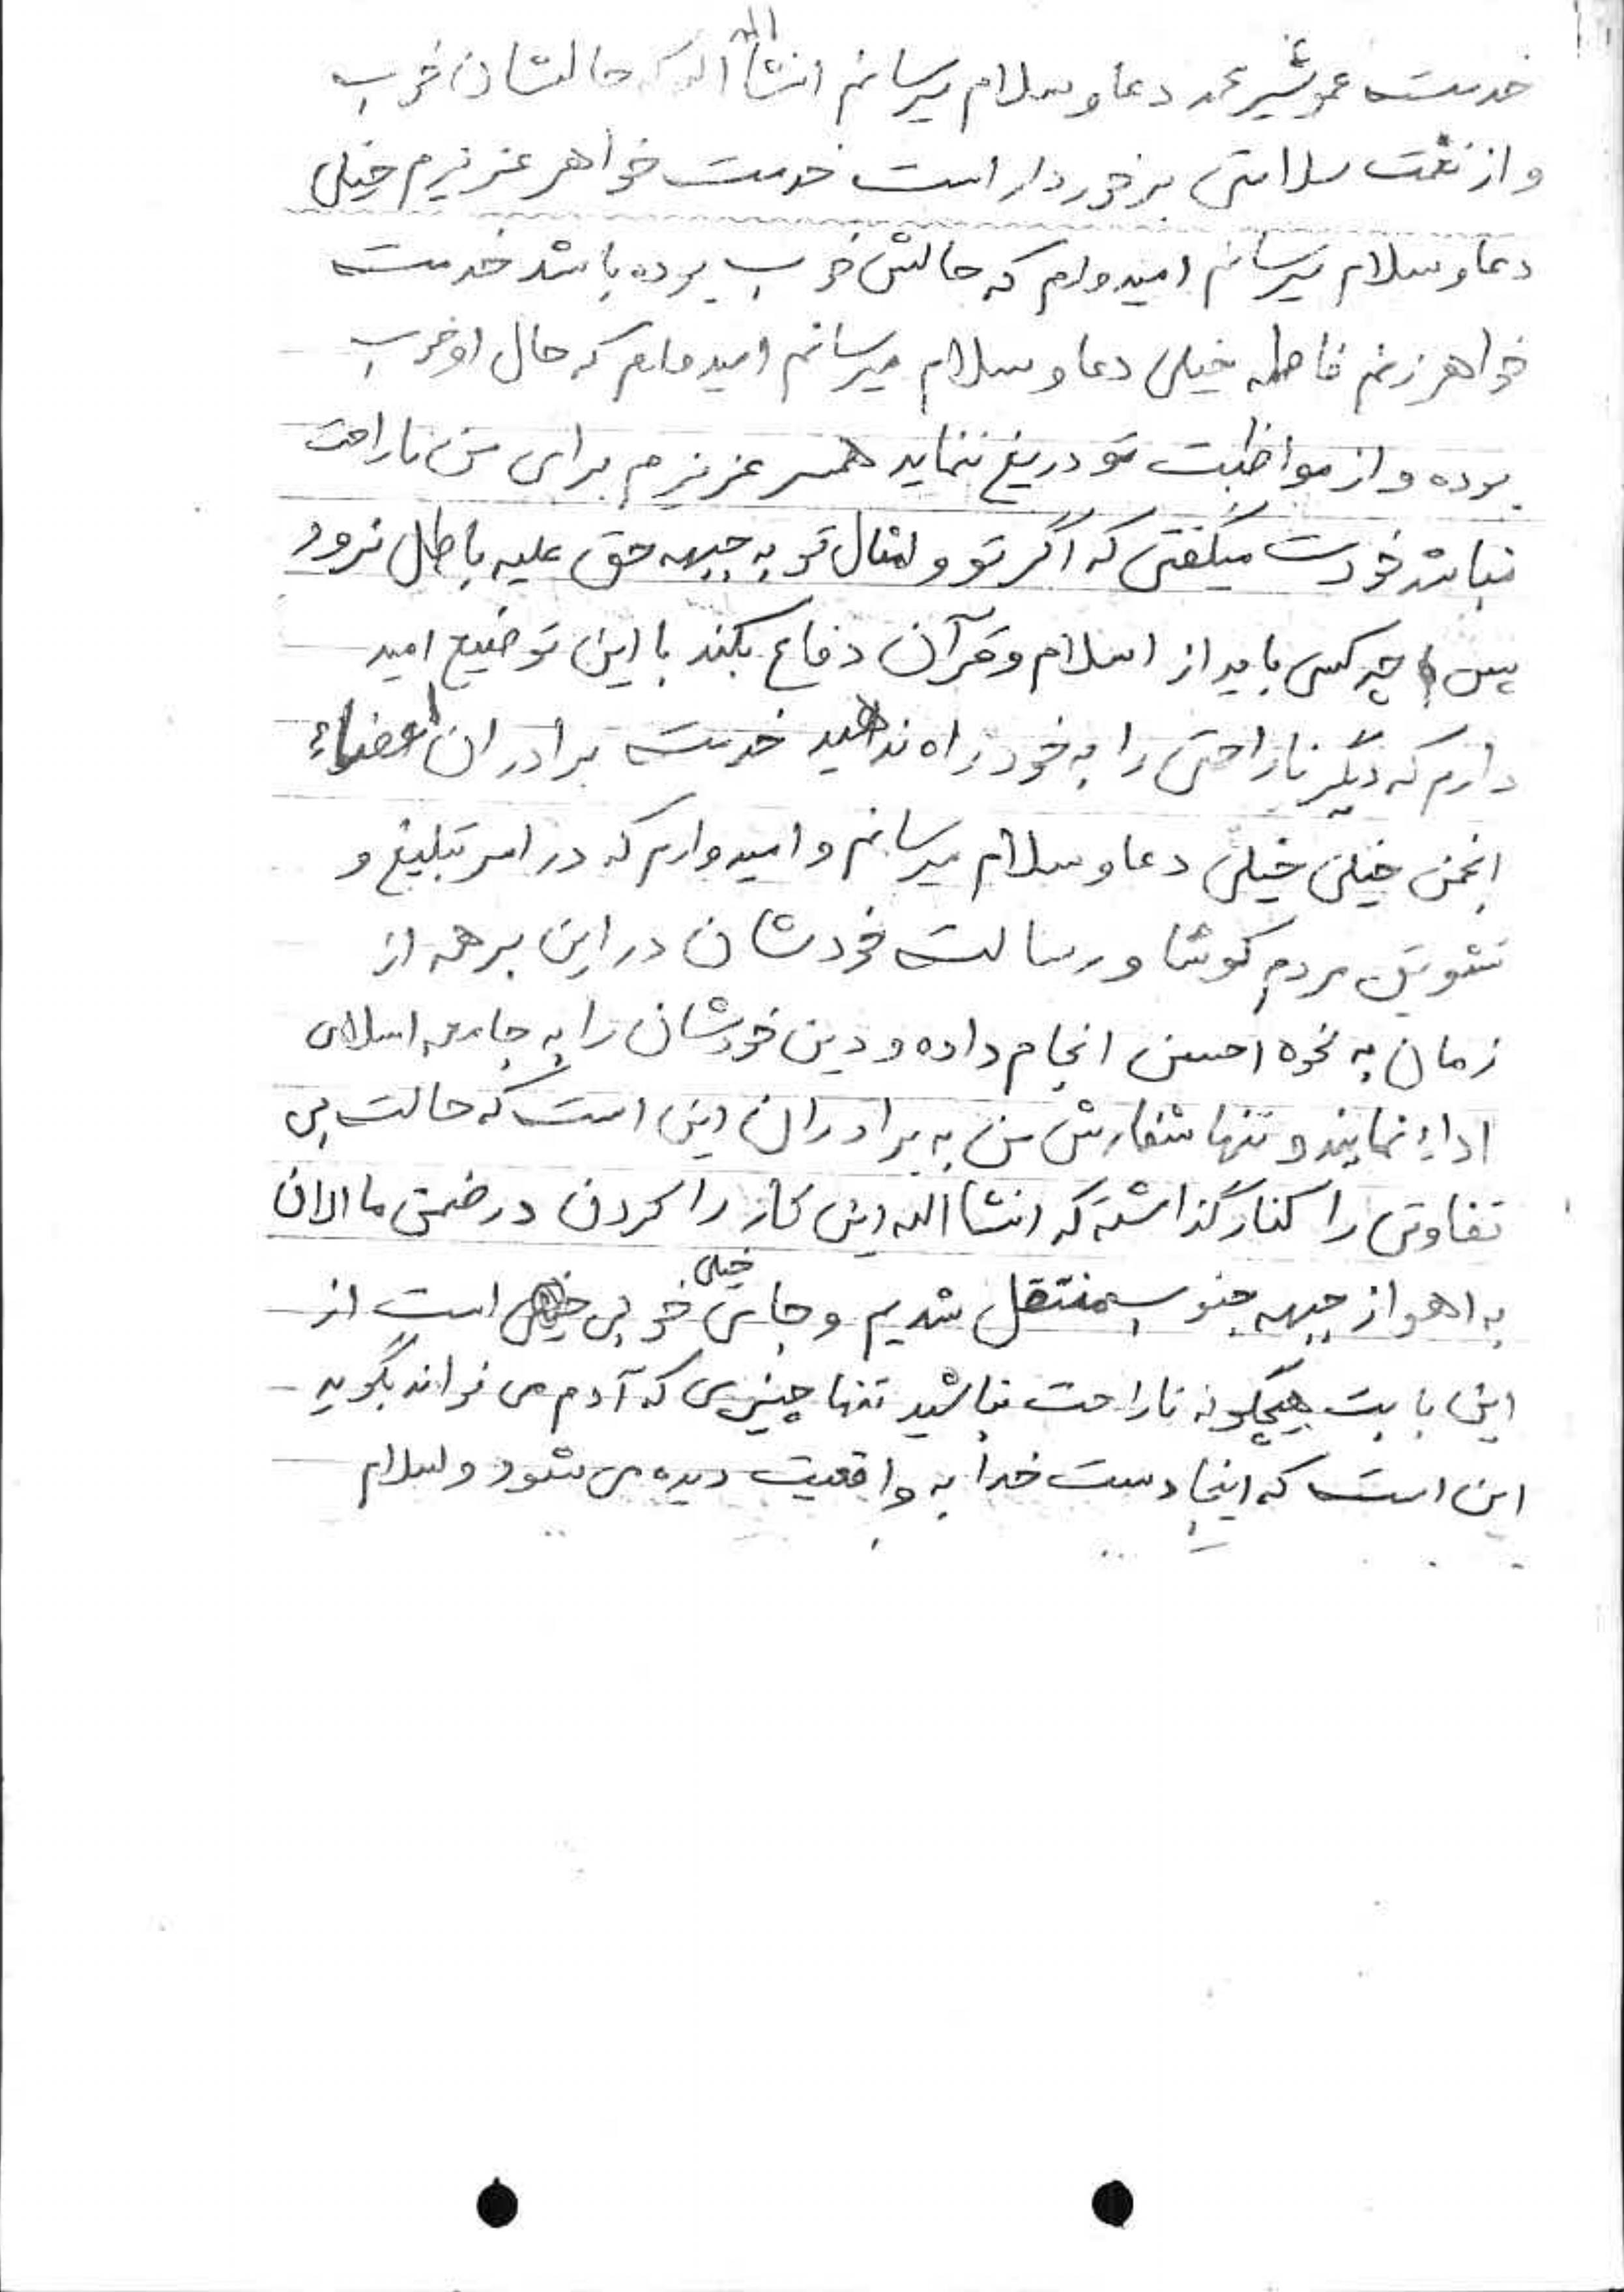 خدمت عمو شیرمحمد دعا و سلام میرسانم انشاالله که حالشان خوب
و از نعمت سلامتی برخوردار است خدمت خواهر عزیزم خیلی
دعا و سلام میرسانم امیدوارم که حالش خوب بوده باشد خدمت
خواهرزنم فاطمه خیلی دعا و سلام میرسانم امیدوارم که حال او خوب
بوده و از مواظبت تو دریغ ننماید همسر عزیزم برای من ناراحت
نباشد خودت میگفتی که اگر تو و امثال تو به جبهه حق علیه باطل نرود
پس چه کسی باید از اسلام و قرآن دفاع بکند با این توضیح امید
دارم که دیگر ناراحتی را به خود راه ندهید خدمت برادران اعضاء
انجمن خیلی خیلی دعا و سلام میرسانم و امیدوارم که در امر تبلیغ و
تشویق مردم کوشا و رسالت خودشان در این برهه از
زمان به نحوه احسن انجام داده و دین خودشان را به جامعه اسلامی
اداء نمایند و تنها سفارش من به برادران این است که حالت بی
تفاوتی را کنار گذاشته که انشاالله این کار را کردن در ضمن ما الان
به اهواز جبهه جنوب منتقل شدیم و جای خیلی خوبی است از
این بابت هیچگونه ناراحت نباشید تنها چیزی که آدم می تواند بگوید
این است که اینجا دست خدا به واقعیت دیده می شود ولسلام